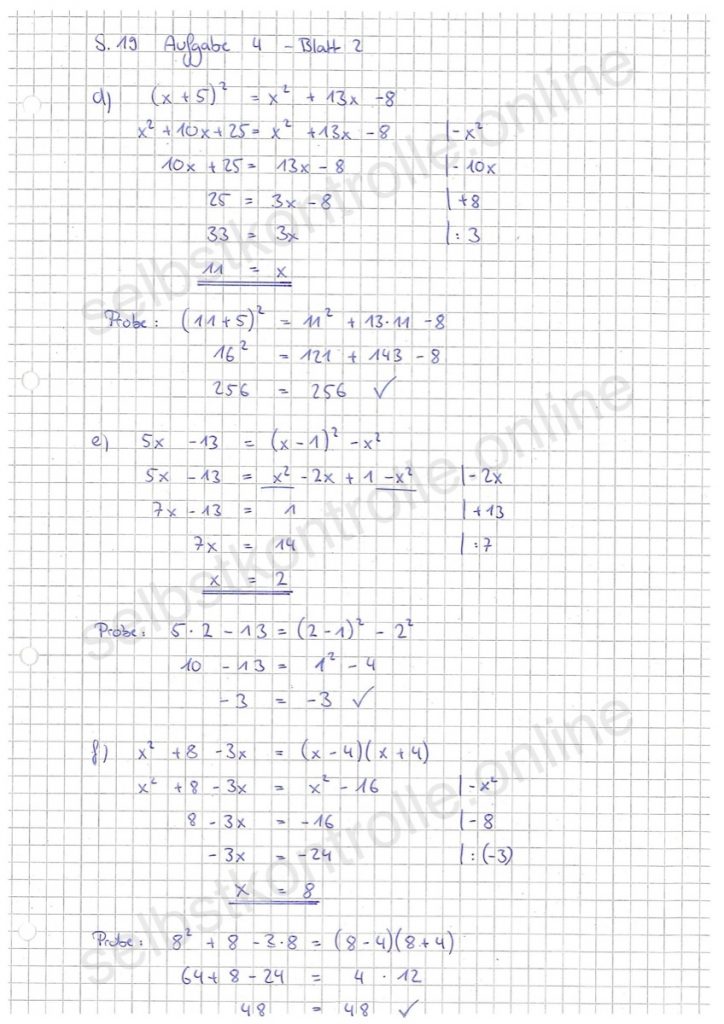 S. 19 Aufgabe 4 - Blatt 2
d) (x + 5)² = x² + 13x - 8
x² + 10x + 25 = x² + 13x - 8 | - x²
10x + 25 = 13x - 8 | - 10x
25 = 3x - 8 | + 8
33 = 3x | : 3
11 = x
Probe: (11 + 5)² = 11² + 13 · 11 - 8
16² = 121 + 143 - 8
256 = 256 ✓
e) 5x - 13 = (x - 1)² - x²
5x - 13 = x² - 2x + 1 - x² | - 2x
7x - 13 = 1 | + 13
7x = 14 | : 7
x = 2
Probe: 5 · 2 - 13 = (2 - 1)² - 2²
10 - 13 = 1² - 4
- 3 = - 3 ✓
f) x² + 8 - 3x = (x - 4)(x + 4)
x² + 8 - 3x = x² - 16 | - x²
8 - 3x = - 16 | - 8
- 3x = - 24 | : (-3)
x = 8
Probe: 8² + 8 - 3 · 8 = (8 - 4)(8 + 4)
64 + 8 - 24 = 4 · 12
48 = 48 ✓
selbstkontrolle.online
selbstkontrolle.online
selbstkontrolle.online